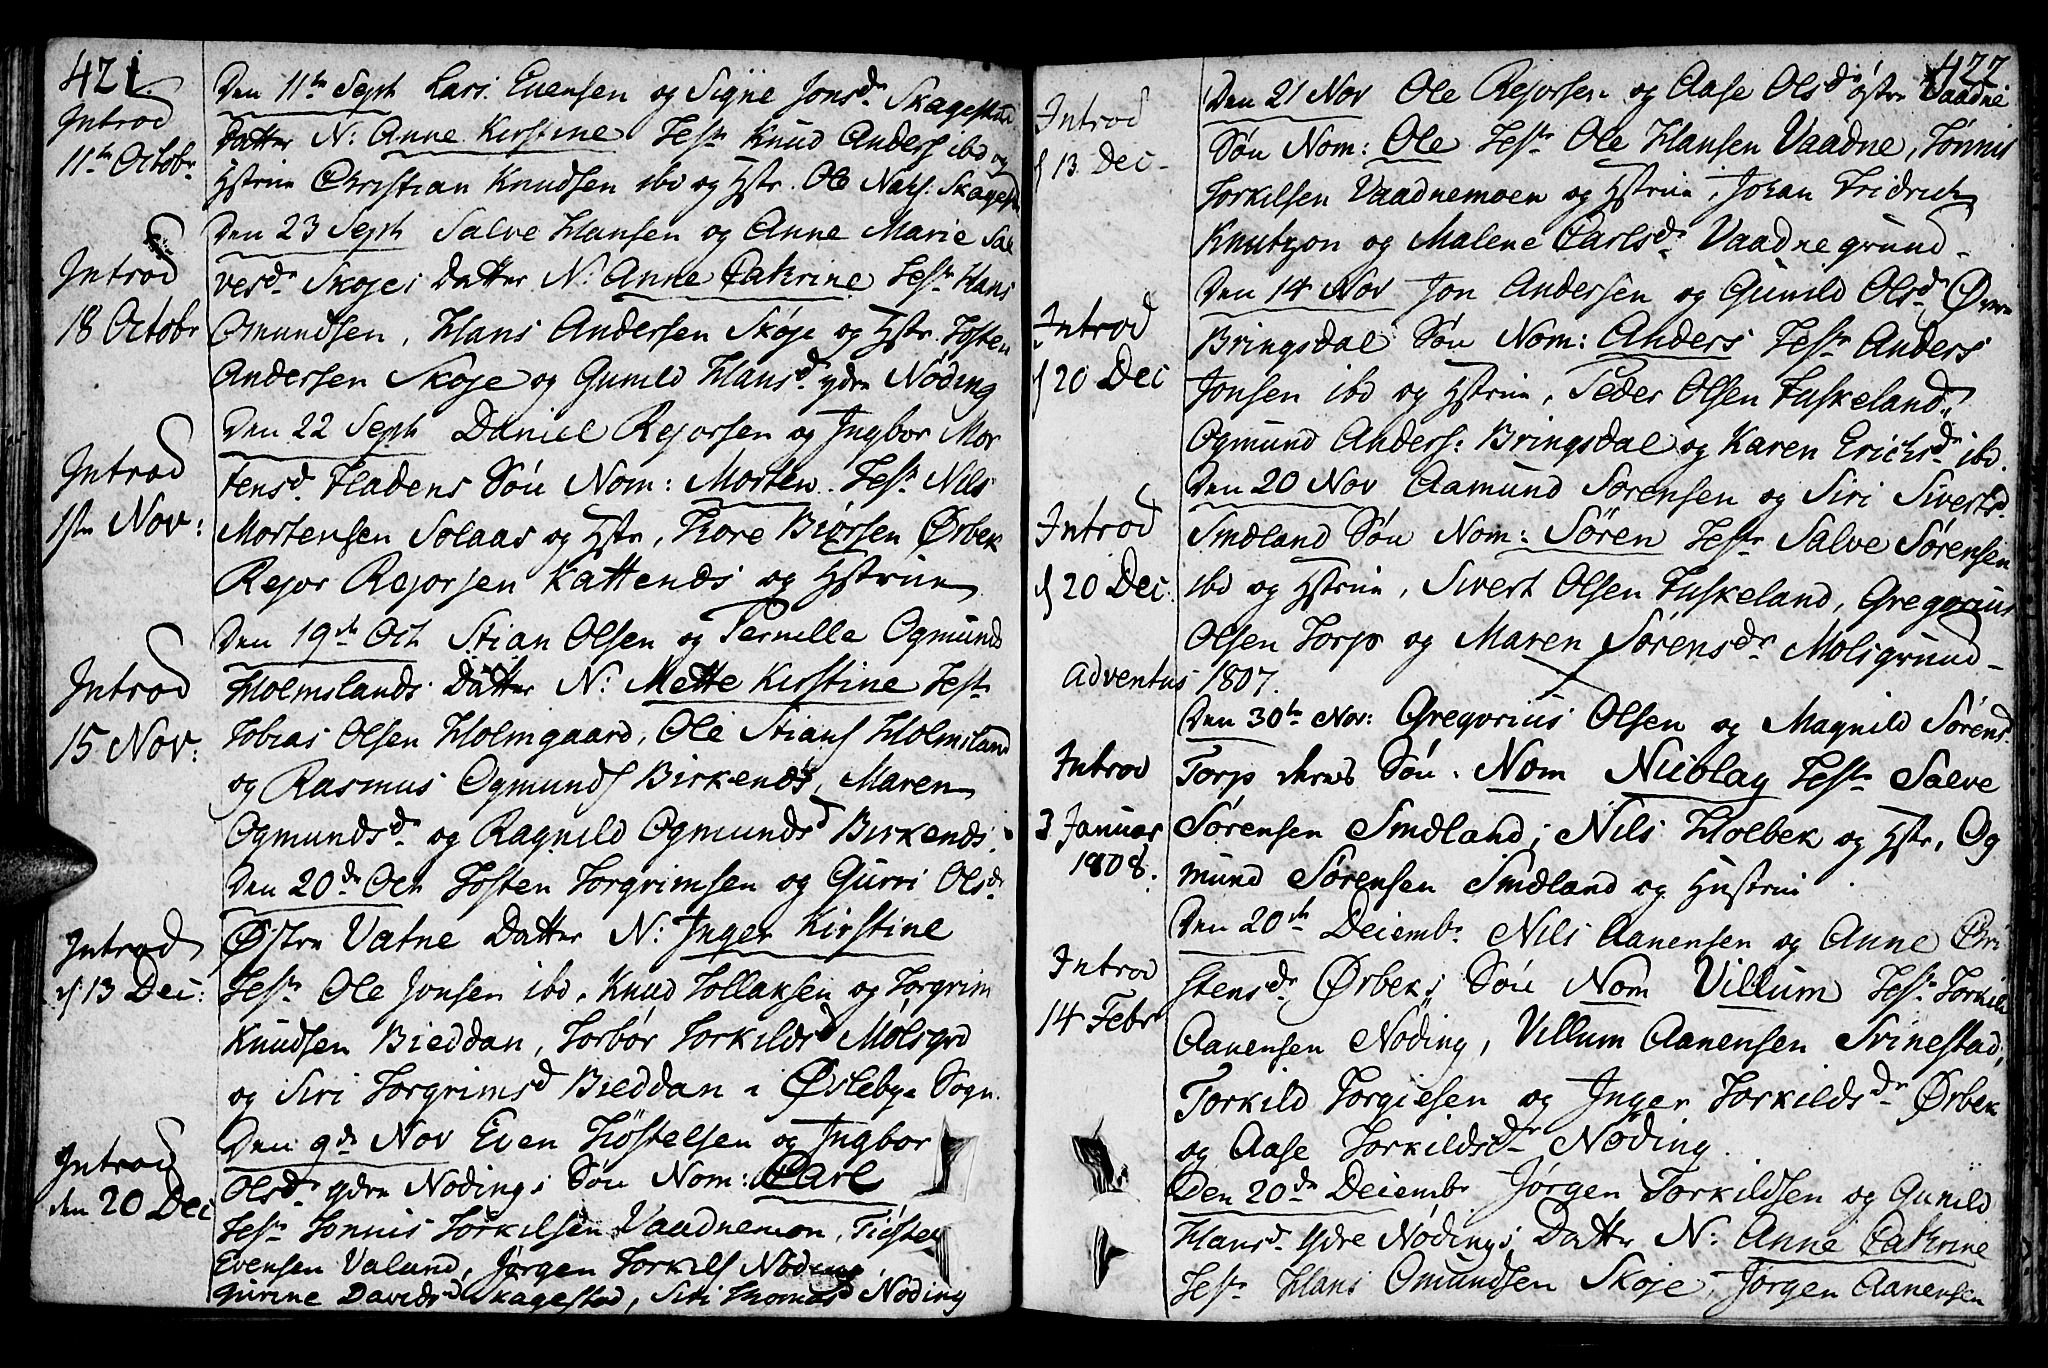 421
Introd
11te Octobr
Den 11te Sept Lars Evensen og Signe Jonsdr Skagestad
Datter N: Anne Kirstine Test Knud Anders ibd og
Hstrue Christian Knudsen ibd og Hstr. Ole Nats: Skagest
Introd
18 Octobr
Den 23 Sept Salve Hansen og Anne Marie Sal
vesdr Skøjes Datter N: Anne Catrine Test Hans
Omundsen, Hans Andersen Skøje og Hstr. Tosten
Andersen Skøje og Gunild Hansd. ydre Nøding
Introd
1ste Nov:
Den 22 Sept Daniel Rejorsen og Ingbor Mor
tensd. Fladens Søn Nom: Morten. Test Nils
Mortensen Solaas og Hstr, Thore Biørsen Ørbek
Rejor Rejorsen Kattends og Hstrue
Introd
15 Nov:
Den 19de Oct Stian Olsen og Pernille Ogmunds
Holmslands Datter N: Mette Kirstine Test
Tobias Olsen Holmgaard, Ole Stians Holmsland
og Rasmus Ogmunds Birkends, Maren
Ogmundsdr og Ragnild Ogmundsd Birkends
Introd
d 13 Dec:
Den 20de Oct Tosten Torgrimsen og Gurri Olsdr
Østre Vatne Datter N: Inger Kirstine
Test Ole Jonsen ibd, Knud Tollaksen og Torgrim
Knudsen Bieddan, Torbør Torkildsd Mølsgrd
og Siri Torgrimsd Bieddan i Øslebye Sogn
Introd
den 20 Dec
Den 9de Nov Even Tiøstelsen og Ingbor
Olsdr ydre Nødings Søn Nom: Carl
Test Tønnis Torkilsen Vaadnemon, Tiøstel
Evensen Valand, Jørgen Torkils Nøding
Gurine Davidsd Skagestad, Siri Thomasd Nøding
422
Introd
d 13 Dec
Den 21 Nov Ole Rejorsen og Aase Olsdr østre Vaadne
Søn Nom: Ole Test Ole Hansen Vaadne, Tønnis
Torkilsen Vaadnemoen og Hstrue, Johan Fridrich
Knutzon og Malene Carlsdr Vaadnegrund
Introd
d 20 Dec
Den 14 Nov Jon Andersen og Gunild Olsdr Øvre
Bringsdal Søn Nom: Anders Test Anders
Jonsen ibd og Hstrue, Peder Olsen Fuskeland,
Ogmund Anders: Bringsdal og Karen Erichsdr ibd.
Introd
d 20 Dec:
Den 20 Nov Aamund Sørensen og Siri Sivertsd.
Smedland Søn Nom: Søren Test Salve Sørensen
ibd og Hstrue, Sivert Olsen Fuskeland, Gregorius
Olsen Torp og Maren Sørensdr Molsgrund
Adventus 1807.
Introd
3 Januar
1808.
Den 30te Nov: Gregorius Olsen og Magnild Sørensd.
Torp deres Søn Nom Nicolay Test Salve
Sørensen Smedland, Nils Holbek og Hstr, Og
mund Sørensen Smedland og Hustrue
Introd
14 Febr
Den 20de Decembr Nils Aanensen og Anne Cri
stensdr Ørbeks Søn Nom Villum Test Torkild
Aanensen Nøding, Villum Aanensen Svinestad,
Torkild Torgiesen og Inger Torkildsdr Ørbek
og Aase Torkildsdr Nøding.
Den 20de Decembr Jørgen Torkildsen og Gunild
Hansd. Ydre Nødings Datter N: Anne Catrine
Test Hans Omundsen Skøje, Jørgen Aanensen